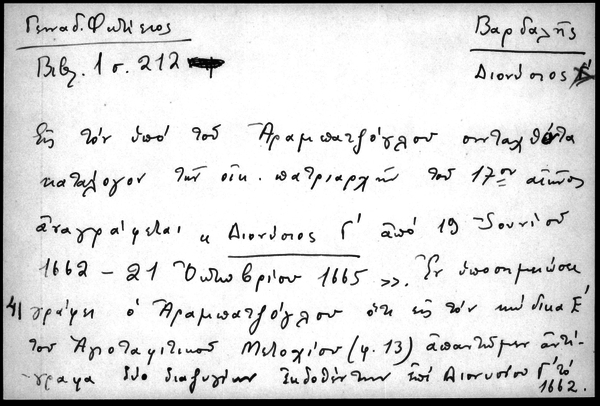 Γενναδ. Φωτίειος
Βαρδαλῆς
Βιβλ. 1 σ. 212
Διονύσιος Γ'
Εἰς τόν ὑπό τοῦ Ἀραμπατζόγλου συνταχθέντα
κατάλογον τῶν οἰκ. πατριαρχῶν τοῦ 17ου αἰῶνος
ἀναγράφεται « Διονύσιος Γ' ἀπό 19 Ἰουνίου
1662 – 21 Ὀκτωβρίου 1665 ». Ἐν ὑποσημειώσει
41 γράφει ὁ Ἀραμπατζόγλου ὅτι εἰς τόν κώδικα Ε'
τοῦ Ἁγιοταφιτικοῦ Μετοχίου (φ. 13) ἀπαντῶμεν ἀντί-
γραφα δύο διαζυγίων ἐκδοθέντων ἐπί Διονυσίου Γ' τό
1662.